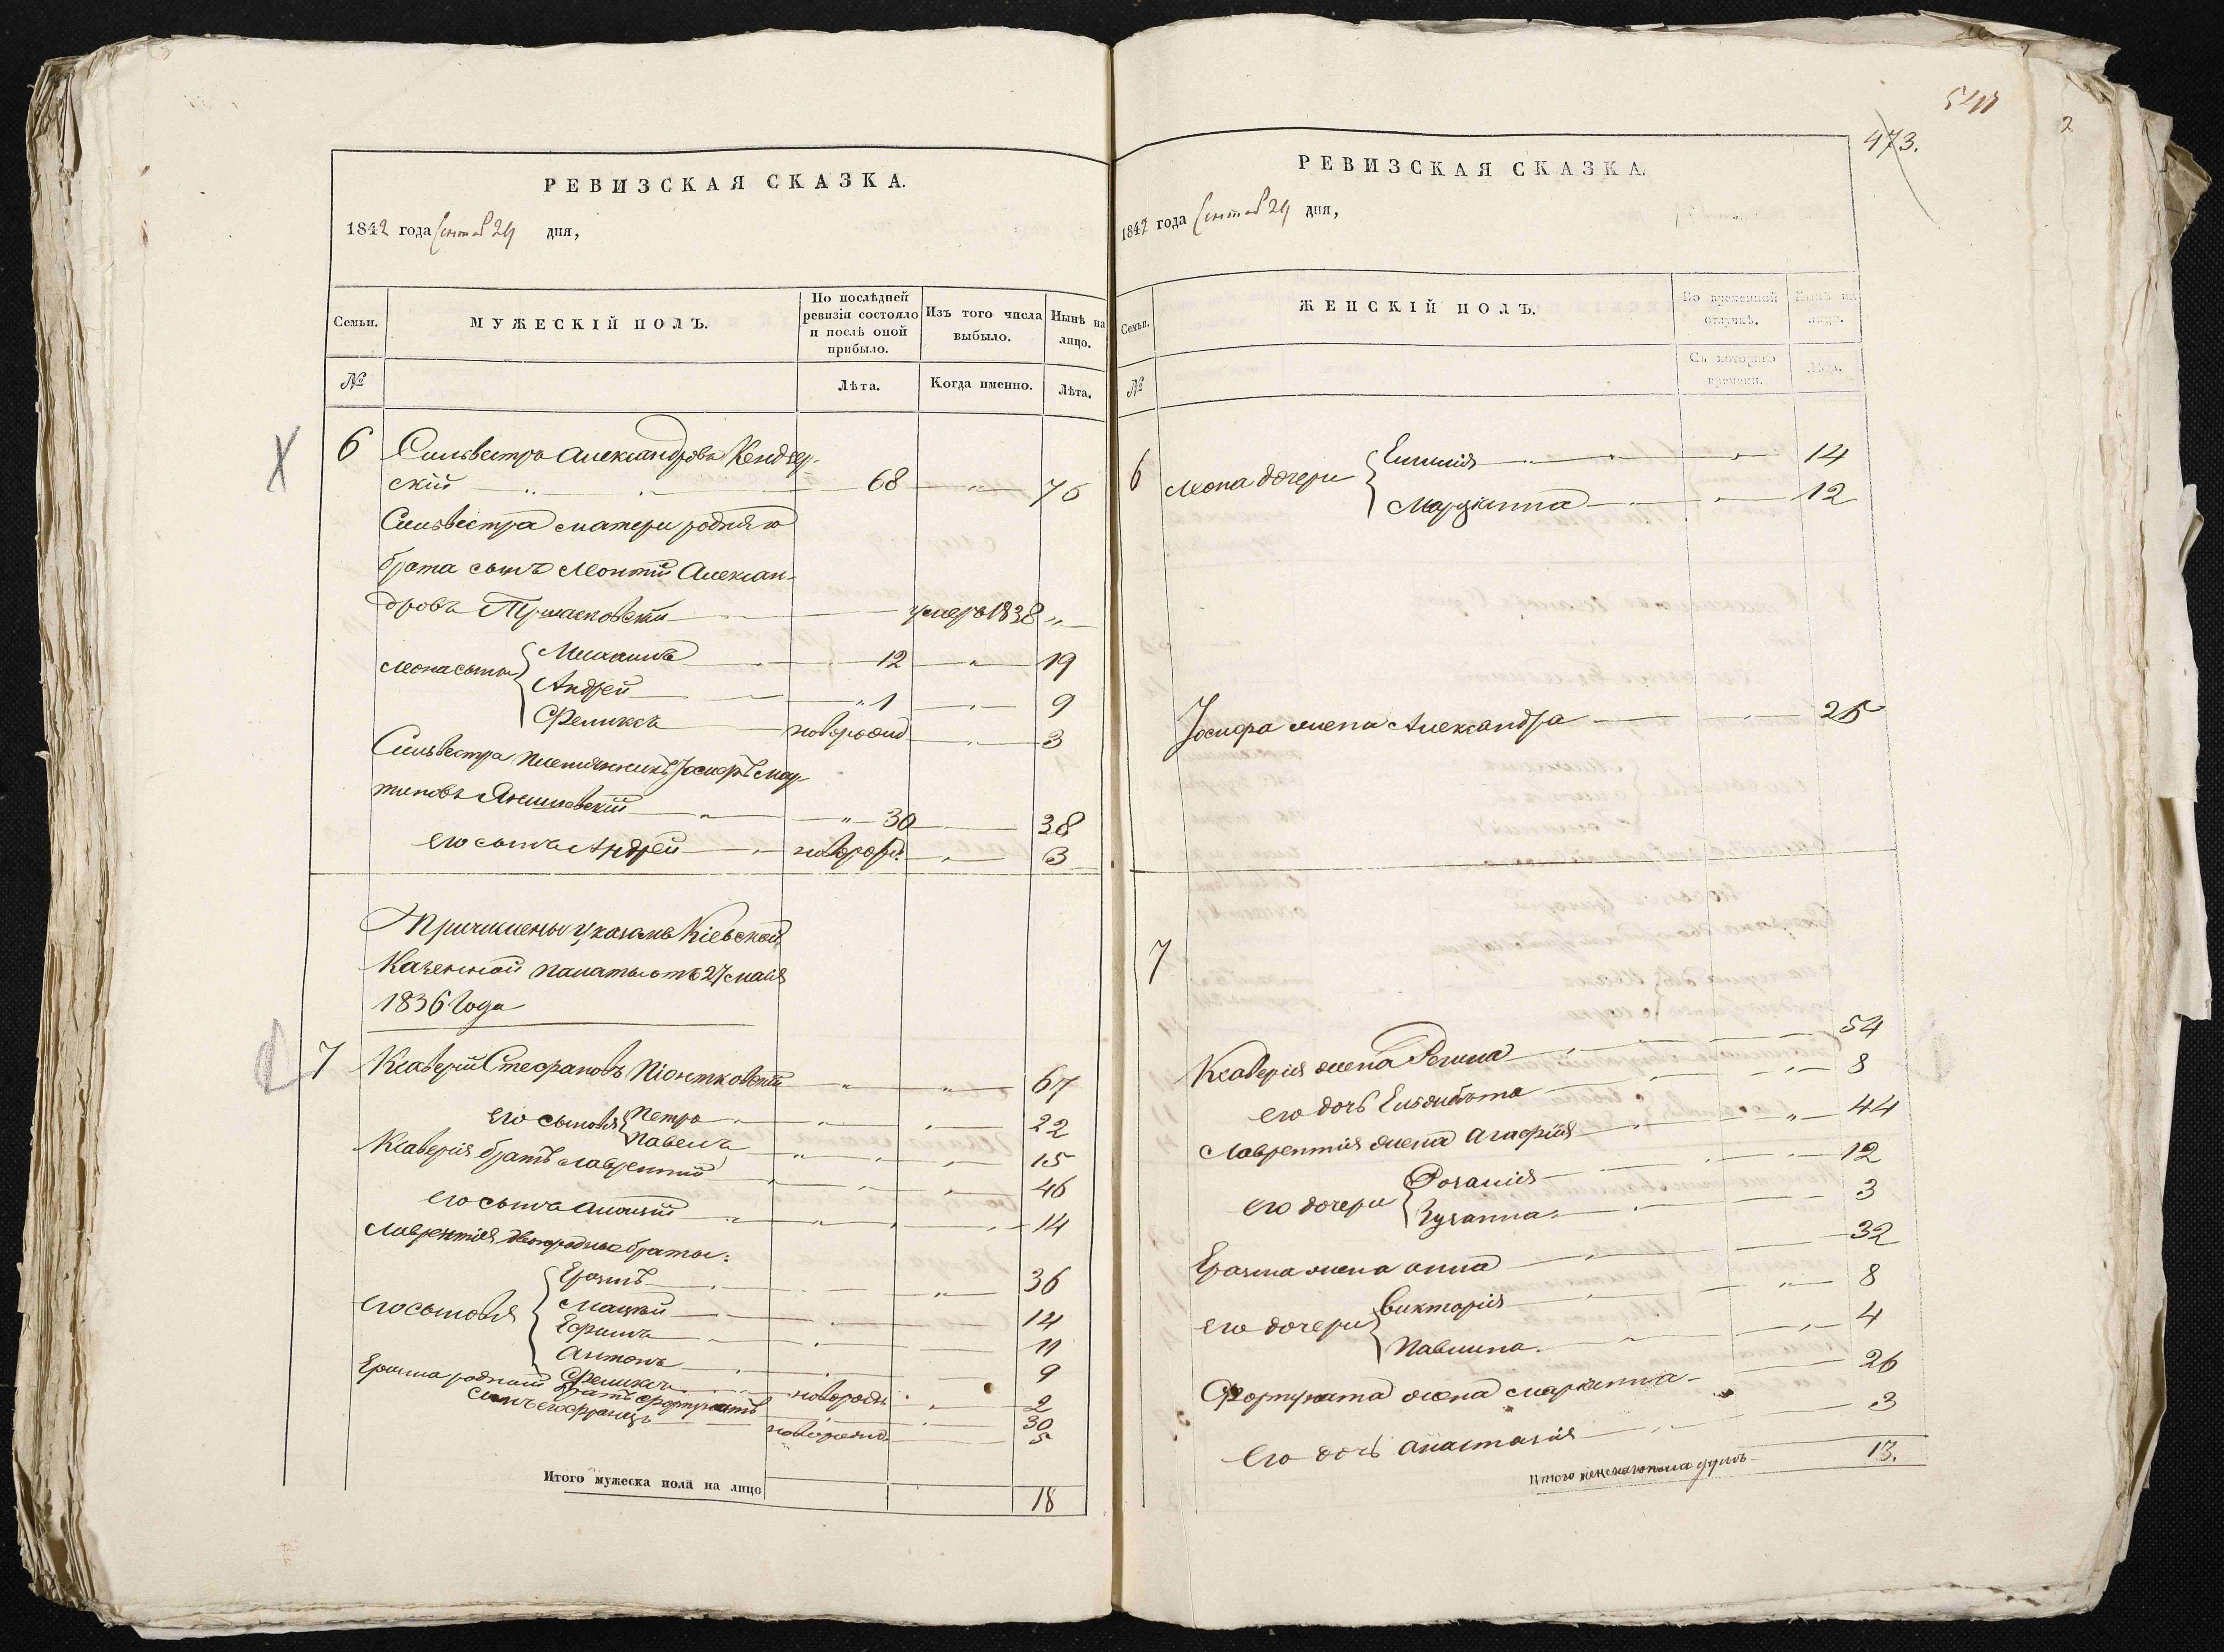 РЕВИЗСКАЯ СКАЗКА.
1842 года 24 дня,
Семьи.
МУЖЕСКІЙ ПОЛЪ.
По послѣдней ревизіи состояло и послѣ оной прибыло.
Изъ того числа выбыло.
Нынѣ на лицо.
№
Лѣта.
Когда именно.
Лѣта.
6 Сильвестръ Александровъ
скій 68 " 76
Сильвестра матери роднаго
брата сынъ Леонтій Алексан-
дровъ умеръ 1838 "
сыны Михаилъ 12 " 19
Андрей 1 " 9
Феликсъ новорожд " 3
Сильвестра племянникъ Іосифъ Мар-
тиновъ Янишевскій " 30 38
его сынъ Андрей новорожд. " 3
Причислены указомъ Кіевской
Казенной палаты отъ 27 маія
1836 года
7 Ксаверій Стефановъ Піонтковскій " " 67
его сыновья Петръ " " 22
Павелъ " " 15
Ксаверія братъ Лаврентій " " 46
его сынъ Алоизій " " 14
Лаврентія двоюродные братья:
Еразмъ " 36
его сыновья Мацѣй " 14
Ефимъ " 11
Антонъ 9
Феликсъ новорожд " 2
Еразма родный братъ Фортунатъ " 30
сынъ его Францъ новорожд. 5
Итого мужеска пола на лицо 18
473.
2
РЕВИЗСКАЯ СКАЗКА.
1842 года 24 дня,
Семьи.
ЖЕНСКІЙ ПОЛЪ.
Во временной отлучкѣ.
Нынѣ на лицо.
№
Съ котораго времени.
Лѣта.
6 дочери 14
Марціанна " 12
Іосифа жена Александра " 25
7
Ксаверія жена " 54
его дочь Елисавета " 8
Лаврентія жена Агафія " 44
его дочери Розалія " 12
Зузанна " 3
Еразма жена Анна " 32
его дочери Викторія " 8
Павлина " 4
Фортуната жена Маріанна 26
его дочь Анастазія 3
Итого женскаго пола душъ 13.